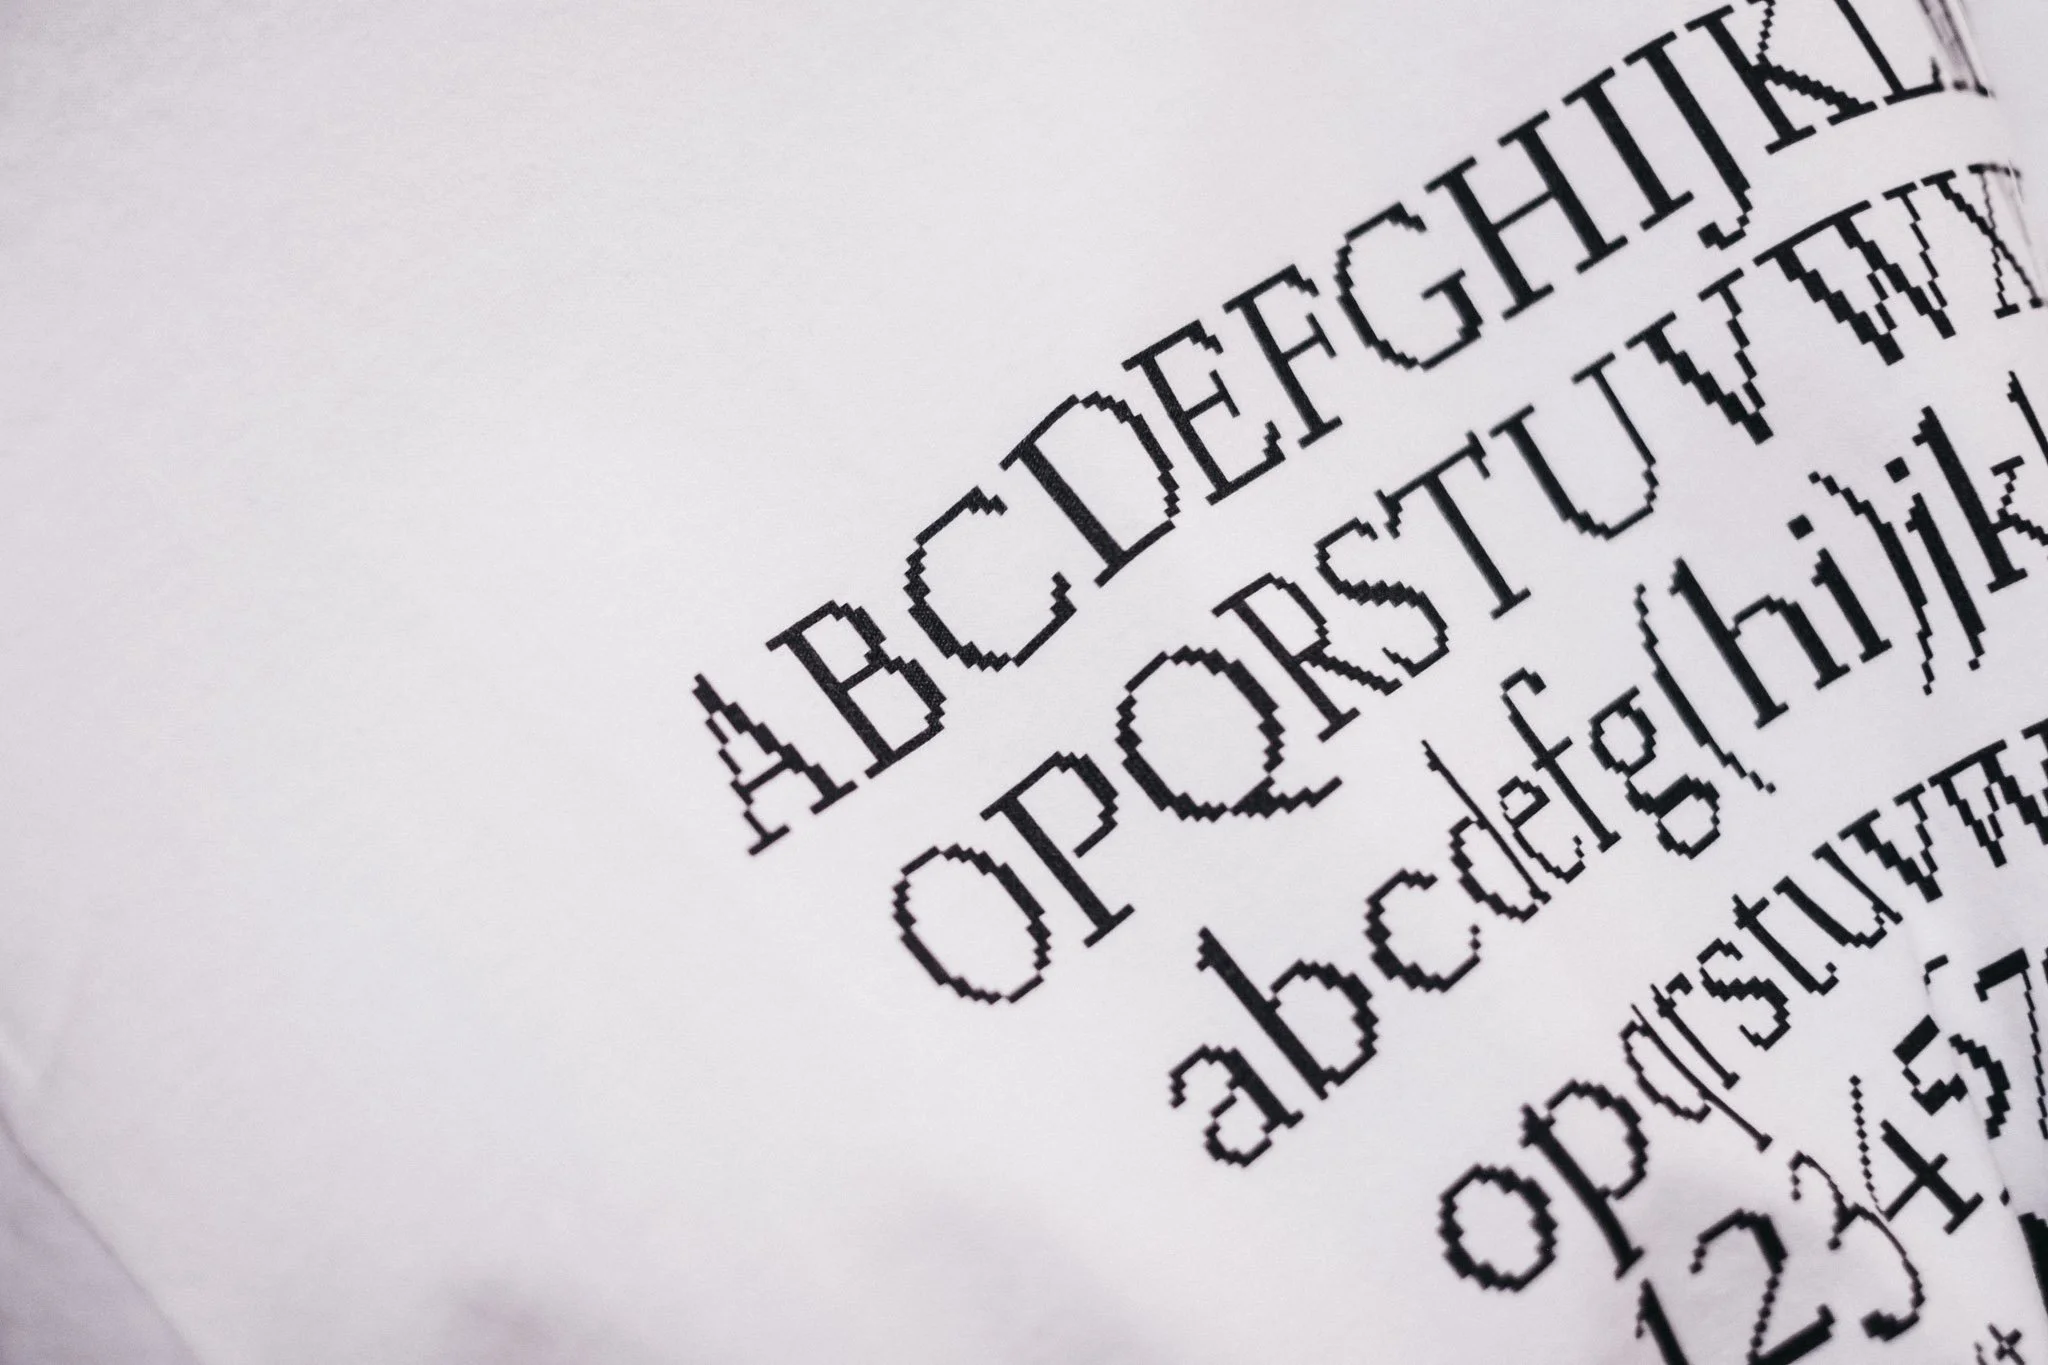 ABCDEFGHIJKL
OPQRSTUVWX
abcdefg(hi)jkl
opqrstuvw
123457